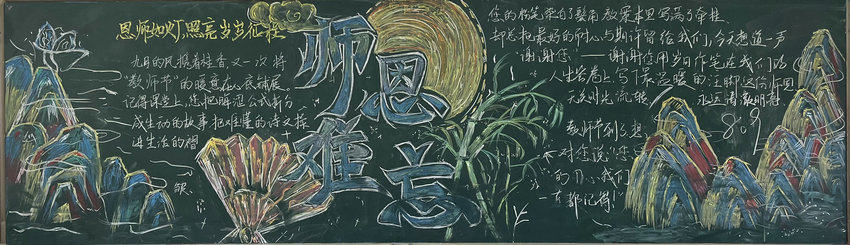 恩师如灯,照亮岁岁征程
九月的风携着桂香,又一次将
"教师节"的暖意在心底铺展
记得课堂上,您把晦涩公式拆分
成生动的故事把难懂的诗文揉
进生活的褶
皱
师恩
难忘
您的粉笔染白了鬓角教案本里写满了牵挂
却总把最好的耐心与期许留给我们,今天想道一声
谢谢您——谢谢您用岁月作笔在我们的
人生答卷上写下最温暖的注脚这份师恩
无关时光流转 永远清晰明亮
教师节到了想
对您说"您
的用心我们一
直都记得!
809